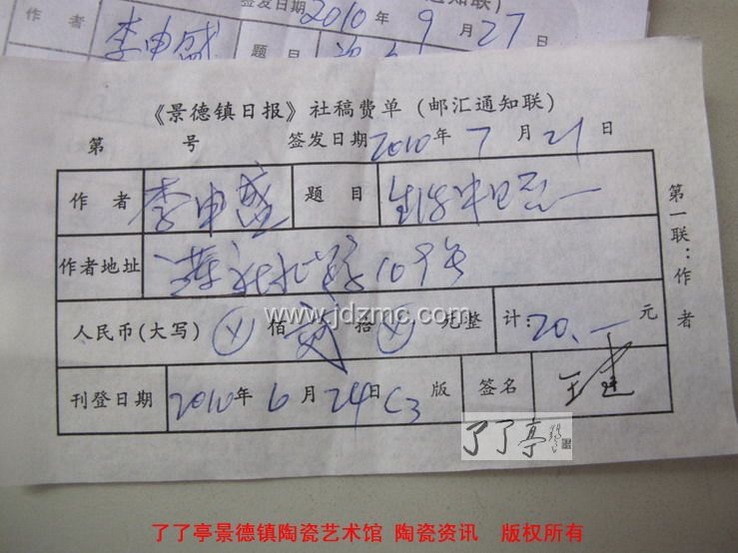 签发日期2010年9月27日
作者 李申盛 题目
《景德镇日报》社稿费单(邮汇通知联)
第 号 签发日期2010年7月21日
作者 李申盛 题目
作者地址 109号
人民币(大写) ⊗佰贰拾⊗元整 计:20.— 元
刊登日期 2010年6月24日C3版 签名 王建
第一联:作者
www.jdzmc.com
了了亭
了了亭景德镇陶瓷艺术馆 陶瓷资讯 版权所有